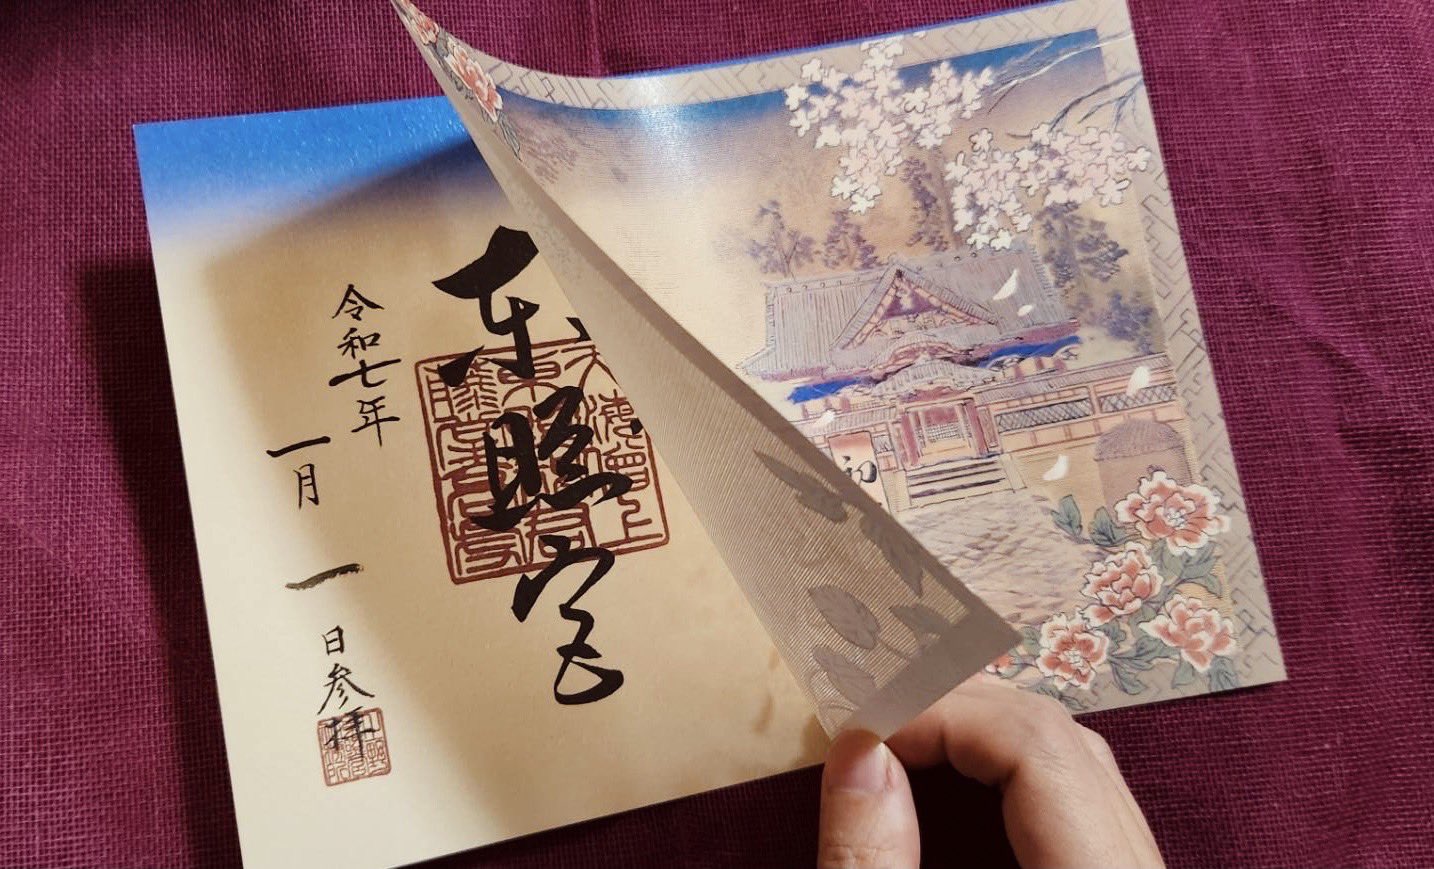 初
東照宮
令和七年
一月一日参拝